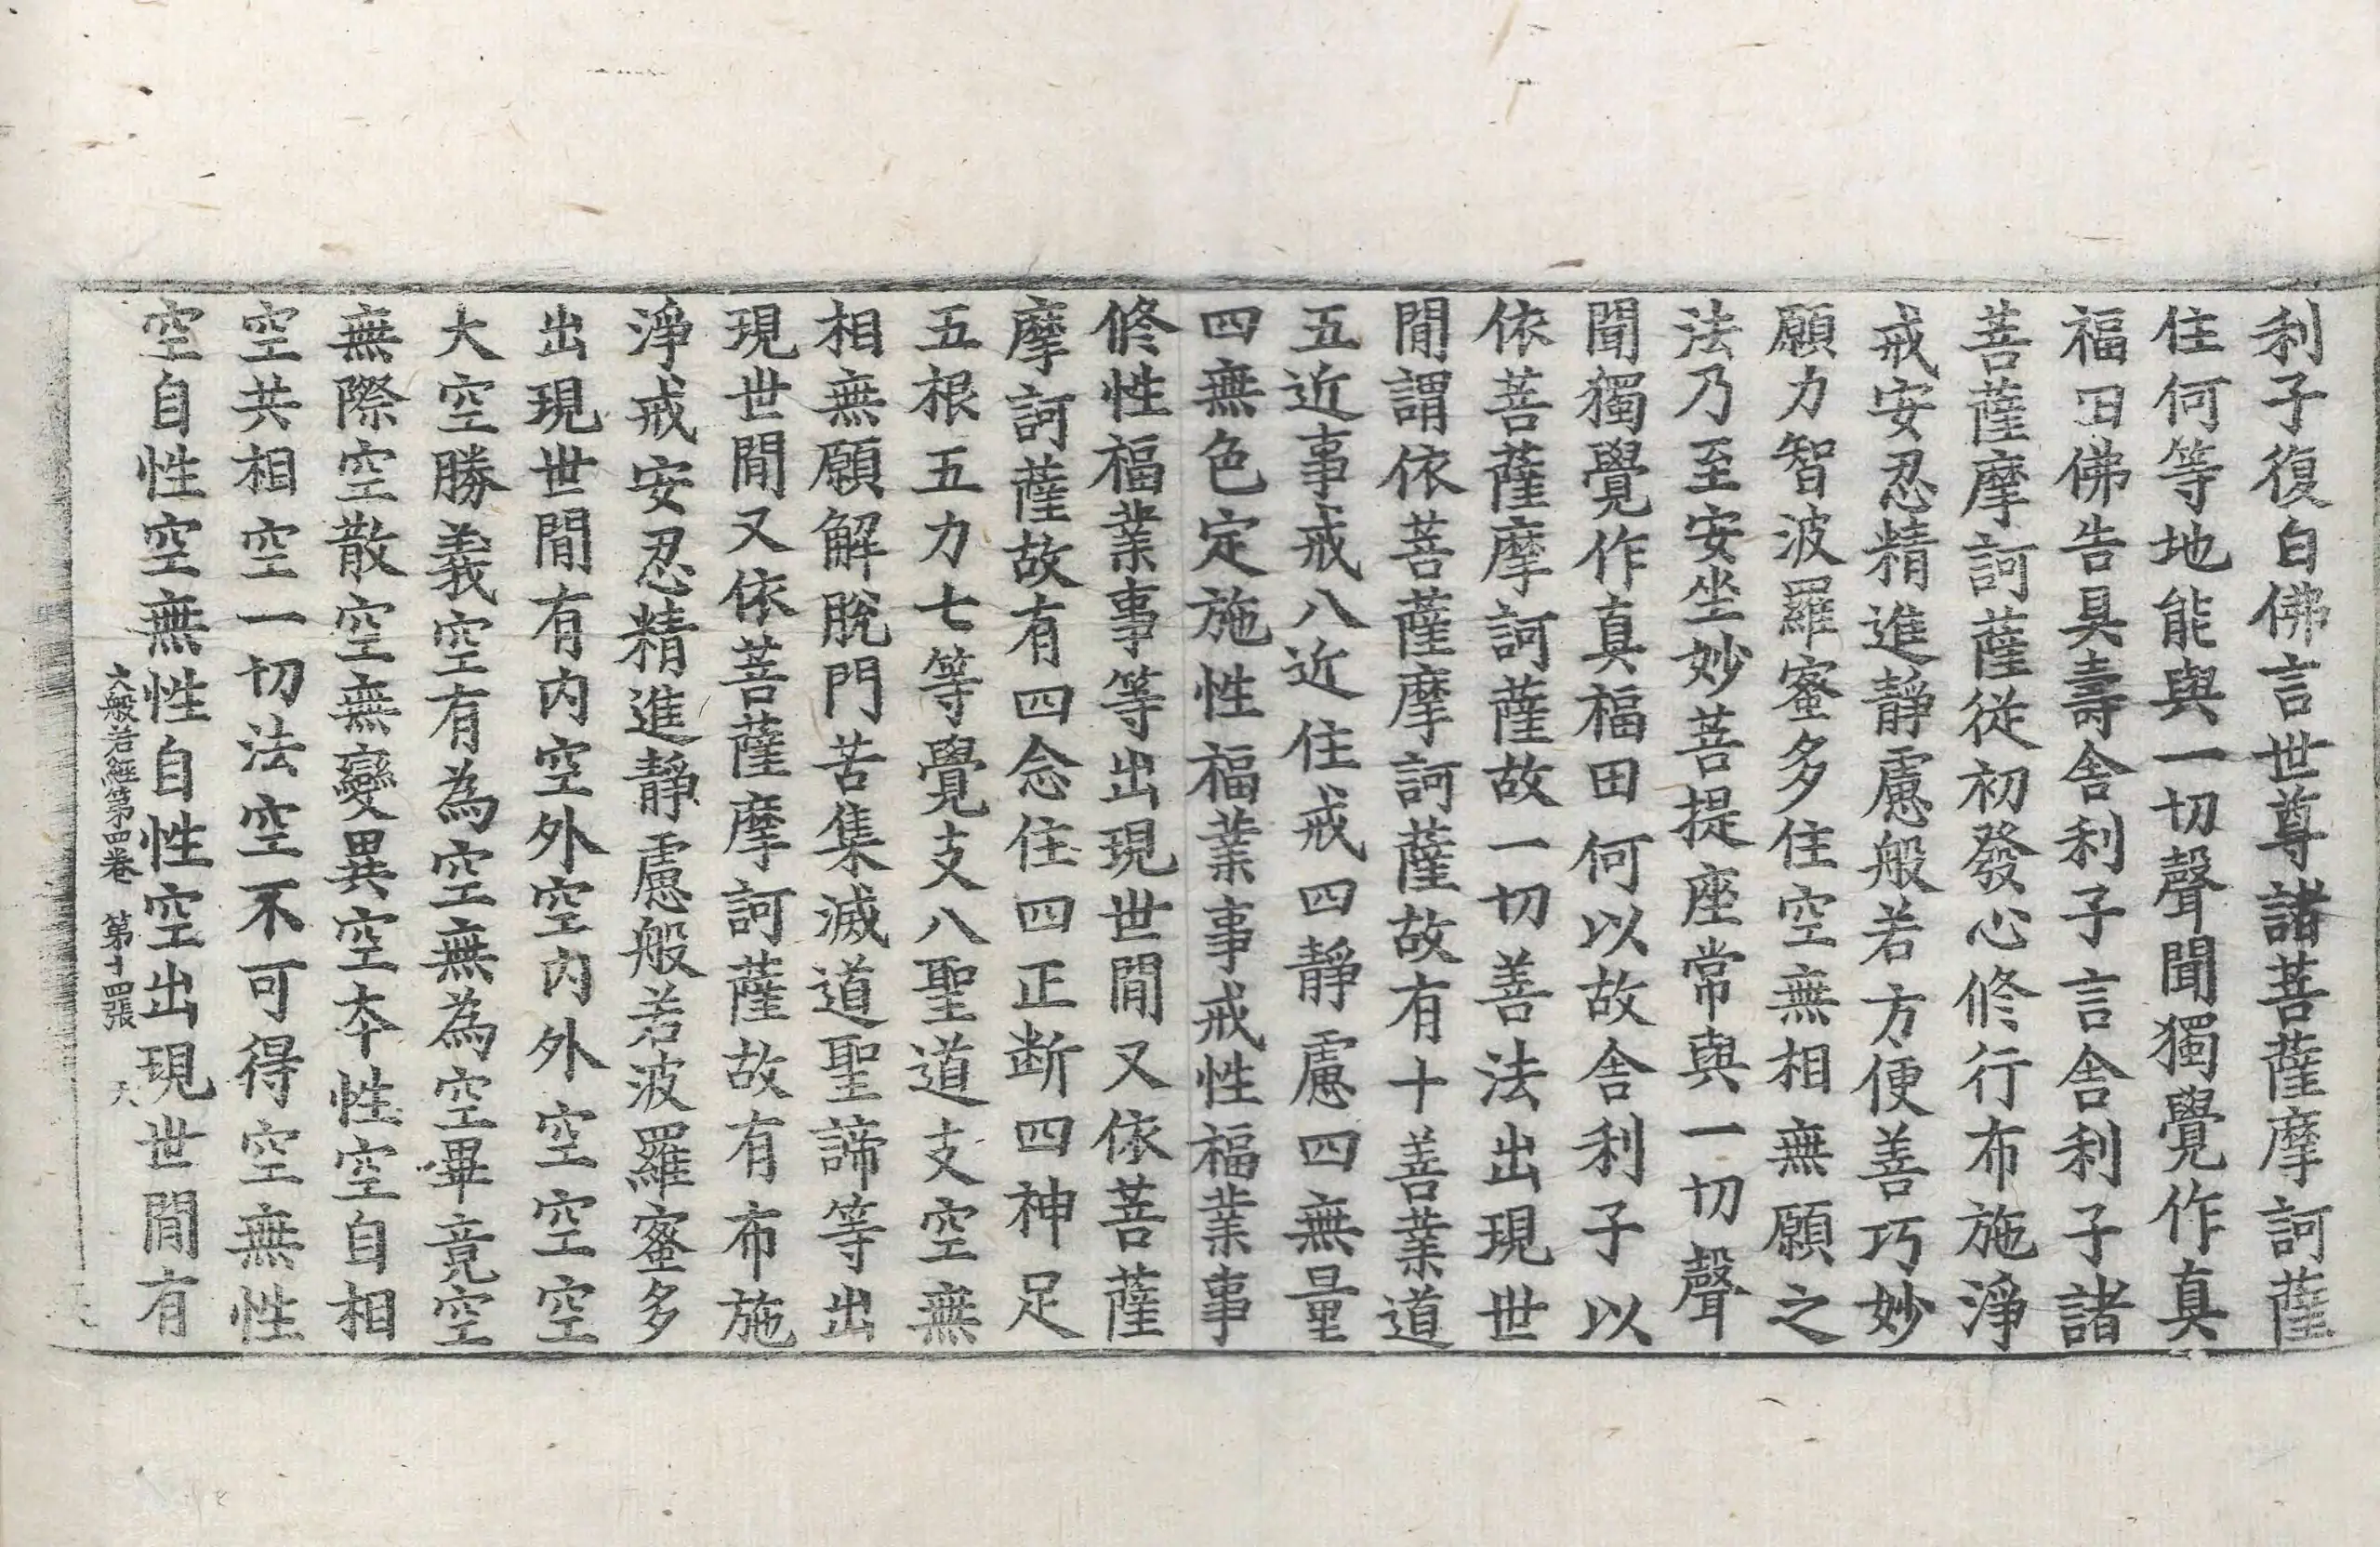 利子復白佛言世尊諸菩薩摩訶薩
住何等地能與一切聲聞獨覺作真
福田佛告具壽舍利子言舍利子諸
菩薩摩訶薩從初發心修行布施淨
戒安忍精進靜慮般若方便善巧妙
願力智波羅蜜多住空無相無願之
法乃至安坐妙菩提座常與一切聲
聞獨覺作真福田何以故舍利子以
依菩薩摩訶薩故一切善法出現世
間謂依菩薩摩訶薩故有十善業道
五近事戒八近住戒四靜慮四無量
四無色定施性福業事戒性福業事
修性福業事等出現世間又依菩薩
摩訶薩故有四念住四正斷四神足
五根五力七等覺支八聖道支空無
相無願解脫門苦集滅道聖諦等出
現世間又依菩薩摩訶薩故有布施
淨戒安忍精進靜慮般若波羅蜜多
出現世間有內空外空內外空空空
大空勝義空有為空無為空畢竟空
無際空散空無變異空本性空自相
空共相空一切法空不可得空無性
空自性空無性自性空出現世間有
大般若經第四卷 第十四張 天